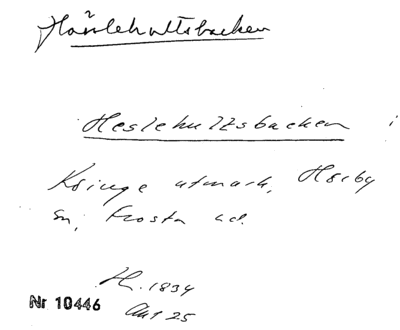 Hässlehultsbacken
Heslehultsbacken i
Kringe utmark, Hörby
sn, Frosta hd.
H. 1834
Akt 25
Nr 10446